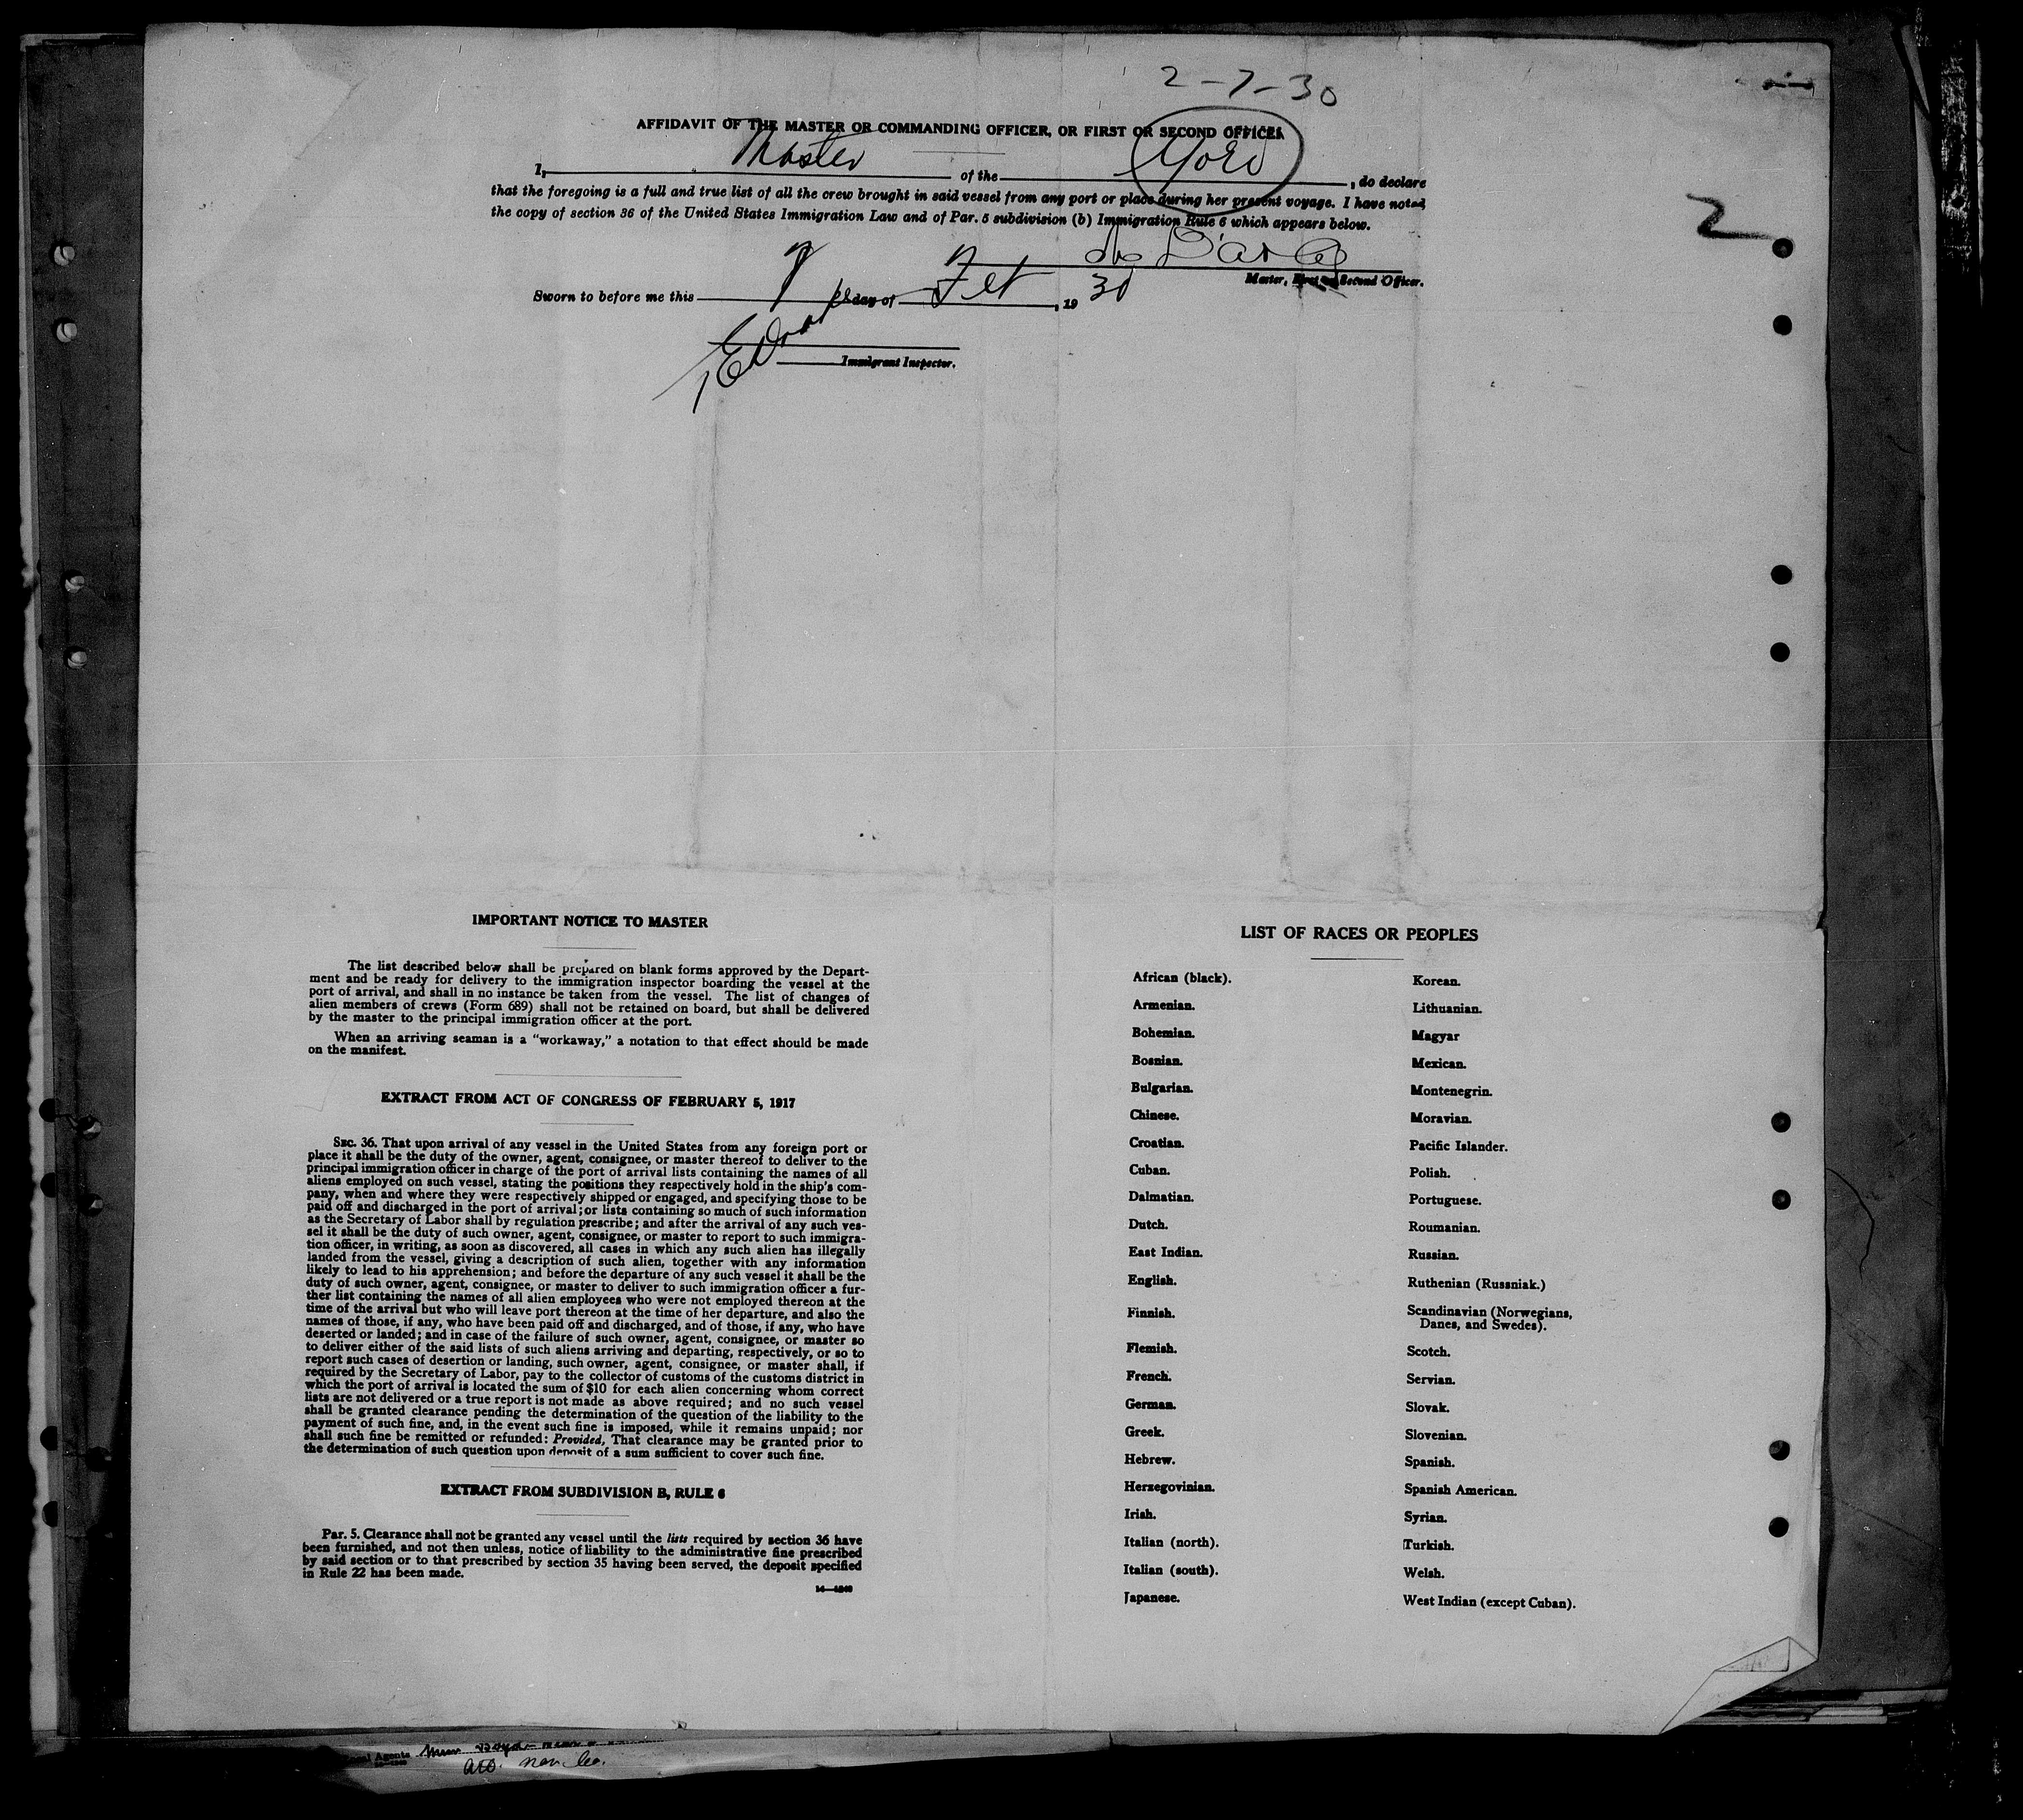 2-7-30
AFFIDAVIT OF THE MASTER OR COMMANDING OFFICER, OR FIRST OR SECOND OFFICER
I, Master of the Yoro, do declare
that the foregoing is a full and true list of all the crew brought in said vessel from any port or place during her present voyage. I have noted
the copy of section 36 of the United States Immigration Law and of Par. 5 subdivision (b) Immigration Rule 6 which appears below.
2
Master, First or Second Officer.
Sworn to before me this 7 day of Feb, 1930
Immigrant Inspector.
IMPORTANT NOTICE TO MASTER
The list described below shall be prepared on blank forms approved by the Depart-
ment and be ready for delivery to the immigration inspector boarding the vessel at the
port of arrival, and shall in no instance be taken from the vessel. The list of changes of
alien members of crews (Form 689) shall not be retained on board, but shall be delivered
by the master to the principal immigration officer at the port.
When an arriving seaman is a "workaway," a notation to that effect should be made
on the manifest.
EXTRACT FROM ACT OF CONGRESS OF FEBRUARY 5, 1917
SEC. 36. That upon arrival of any vessel in the United States from any foreign port or
place it shall be the duty of the owner, agent, consignee, or master thereof to deliver to the
principal immigration officer in charge of the port of arrival lists containing the names of all
aliens employed on such vessel, stating the positions they respectively hold in the ship's com-
pany, when and where they were respectively shipped or engaged, and specifying those to be
paid off and discharged in the port of arrival; or lists containing so much of such information
as the Secretary of Labor shall by regulation prescribe; and after the arrival of any such ves-
sel it shall be the duty of such owner, agent, consignee, or master to report to such immigra-
tion officer, in writing, as soon as discovered, all cases in which any such alien has illegally
landed from the vessel, giving a description of such alien, together with any information
likely to lead to his apprehension; and before the departure of any such vessel it shall be the
duty of such owner, agent, consignee, or master to deliver to such immigration officer a fur-
ther list containing the names of all alien employees who were not employed thereon at the
time of the arrival but who will leave port thereon at the time of her departure, and also the
names of those, if any, who have been paid off and discharged, and of those, if any, who have
deserted or landed; and in case of the failure of such owner, agent, consignee, or master so
to deliver either of the said lists of such aliens arriving and departing, respectively, or so to
report such cases of desertion or landing, such owner, agent, consignee, or master shall, if
required by the Secretary of Labor, pay to the collector of customs of the customs district in
which the port of arrival is located the sum of $10 for each alien concerning whom correct
lists are not delivered or a true report is not made as above required; and no such vessel
shall be granted clearance pending the determination of the question of the liability to the
payment of such fine, and, in the event such fine is imposed, while it remains unpaid; nor
shall such fine be remitted or refunded: Provided, That clearance may be granted prior to
the determination of such question upon deposit of a sum sufficient to cover such fine.
EXTRACT FROM SUBDIVISION B, RULE 6
Par. 5. Clearance shall not be granted any vessel until the lists required by section 36 have
been furnished, and not then unless, notice of liability to the administrative fine prescribed
by said section or to that prescribed by section 35 having been served, the deposit specified
in Rule 22 has been made.
LIST OF RACES OR PEOPLES
African (black).
Armenian.
Bohemian.
Bosnian.
Bulgarian.
Chinese.
Croatian.
Cuban.
Dalmatian.
Dutch.
East Indian.
English.
Finnish.
Flemish.
French.
German.
Greek.
Hebrew.
Herzegovinian.
Irish.
Italian (north).
Italian (south).
Japanese.
Korean.
Lithuanian.
Magyar
Mexican.
Montenegrin.
Moravian.
Pacific Islander.
Polish.
Portuguese.
Roumanian.
Russian.
Ruthenian (Russniak.)
Scandinavian (Norwegians,
Danes, and Swedes).
Scotch.
Servian.
Slovak.
Slovenian.
Spanish.
Spanish American.
Syrian.
Turkish.
Welsh.
West Indian (except Cuban).
Agents